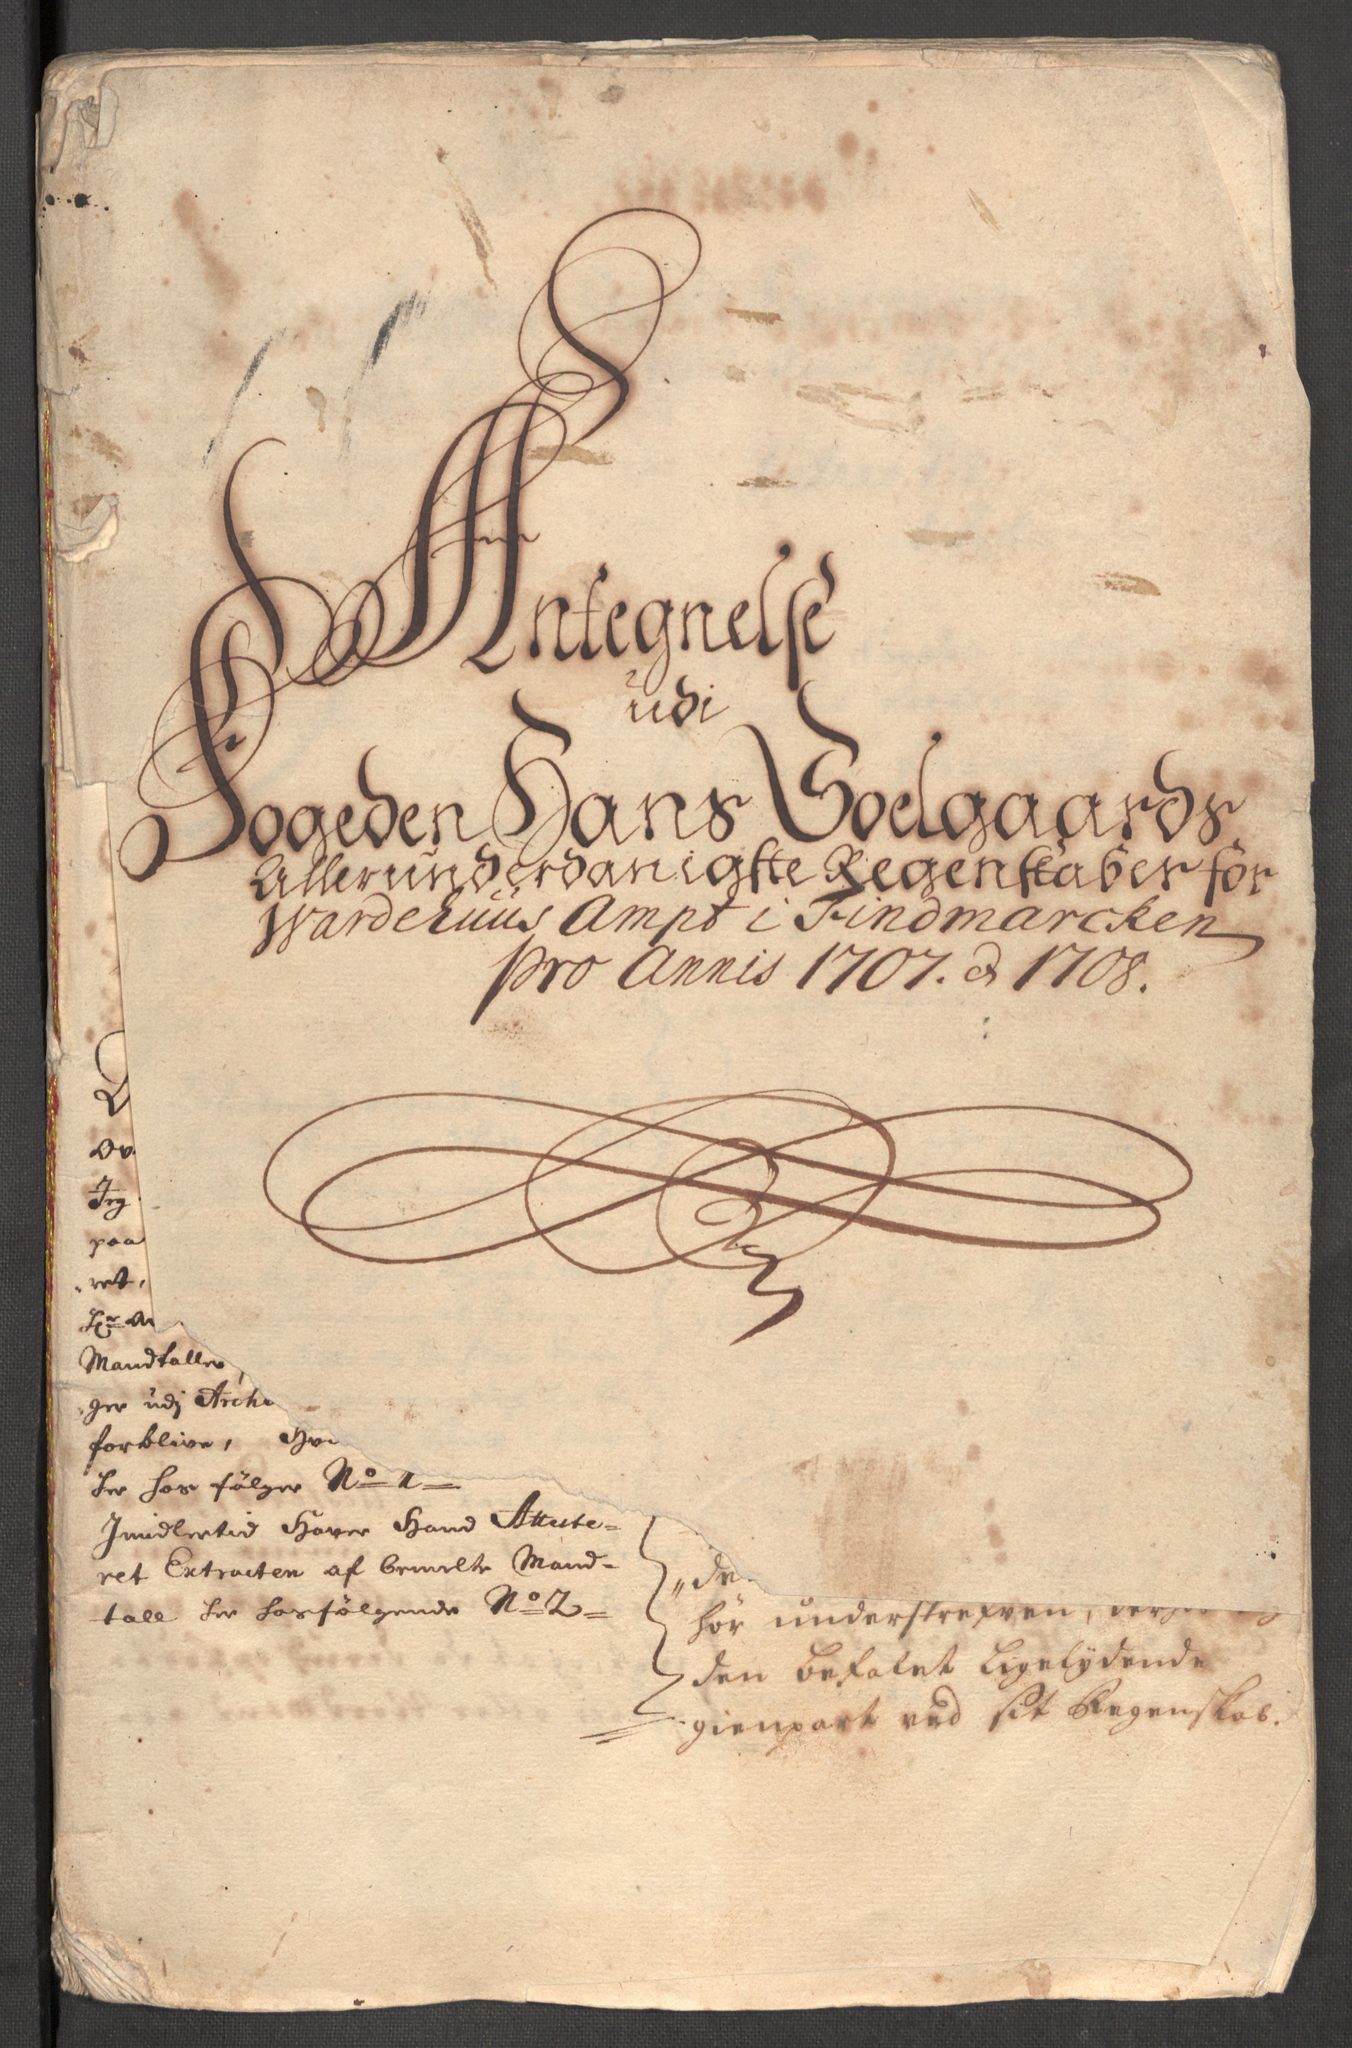 Antegnelse
udi
Fogeden Hans Soelgaards
Allerunderdanigste Regenskaber for
Wardehuus Ampt i Findmarcken
pro Annis 1707. & 1708.
Jeg
paa
ret,
Mandtaller,
ger udj Arch
forblive, Hvi
her hos følger No 1
Jmidlertid Haver Hand Atteste-
ret Extracten af bemelte Mand-
tall her hosfølgende No 2
de
hør understrefven,
den befalet Ligelydende
gienpart ved sit Regenskab.